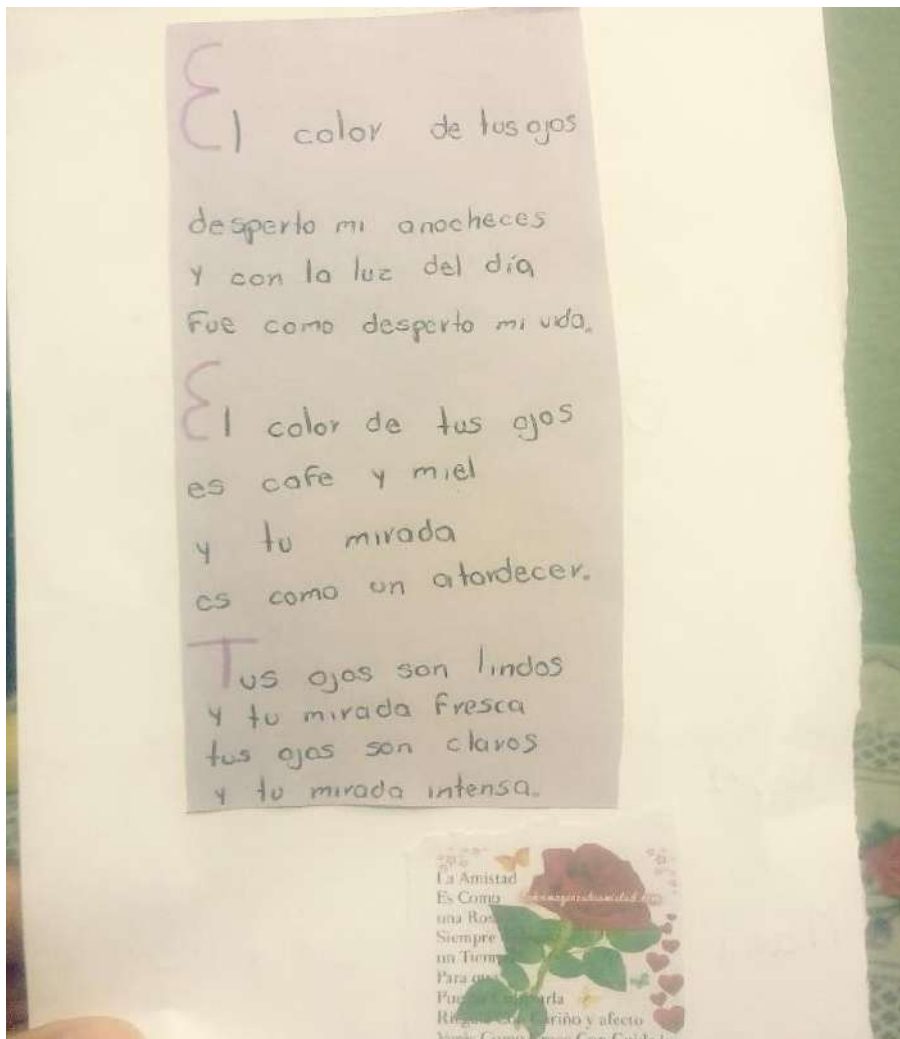 El color de tus ojos
desperto mi anocheces
y con la luz del día
Fue como desperto mi vida.
El color de tus ojos
es cafe y miel
y tu mirada
es como un atardecer.
Tus ojos son lindos
y tu mirada fresca
tus ojos son claros
y tu mirada intensa.
La Amistad
Es Como
una
Siempre
un
Para
Con Cariño y afecto